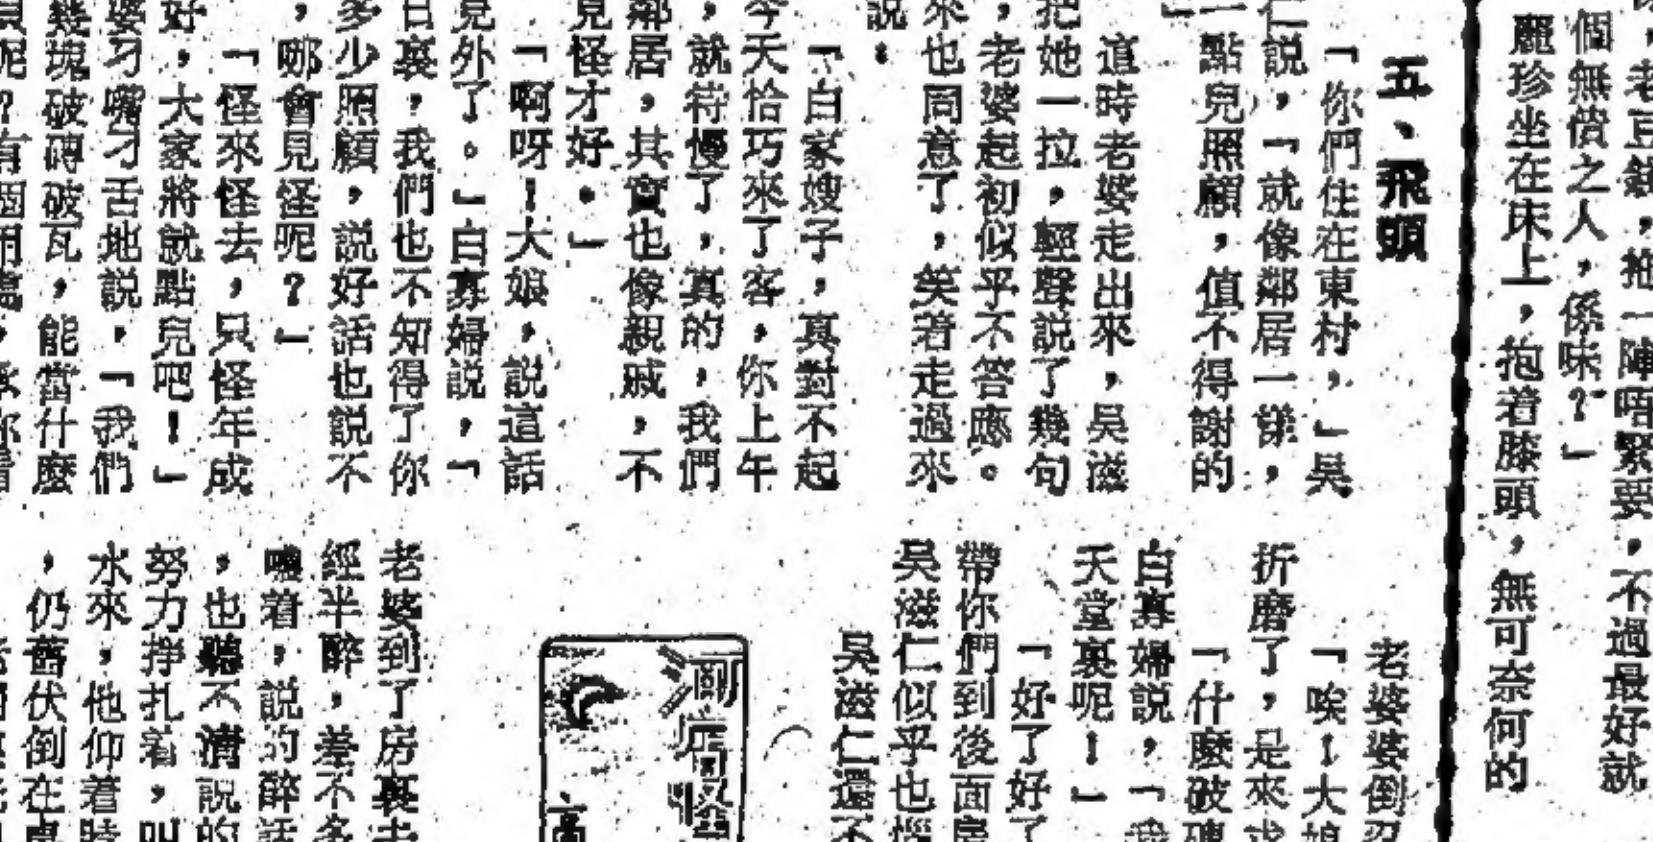 ，老豆雖，拖一陣唔緊要，不過最好就
個無償之人，係咪？」
麗珍坐在床上，抱着膝頭，無可奈何的
五、飛頭
「你們住在東村，」吳
仁說，「就像鄰居一樣，
一點兒照顧，值不得謝的
」
這時老婆走出來，吳滋
把她一拉，輕聲說了幾句
，老婆起初似乎不答應。
來也同意了，笑着走過來
說：
「白家嫂子，真對不起
今天恰巧來了客，你上午
，就待慢了，真的，我們
鄰居，其實也像親戚，不
見怪才好。」
「啊呀！大娘，說這話
見外了。」白寡婦說，「
日裏，我們也不知得了你
多少照顧，說好話也說不
，哪會見怪呢？」
「怪來怪去，只怪年成
好，大家將就點兒吧！」
婆刁嘴刁舌地說，「我們
幾塊破磚破瓦，能當什麼
呢？有個用處，承你看
老婆婆倒忍
「唉！大娘
折磨了，是來求
「什麼破磚
白寡婦說，「我
天堂裏呢！」
「好了好了
帶你們到後面房
吳滋仁似乎也惱
吳滋仁還不
怪
高
老婆到了房裏去
經半醉，差不多
嚷着，說的醉話
，也聽不清說的
努力掙扎着，叫
水來，他仰着時
，仍舊伏倒在桌